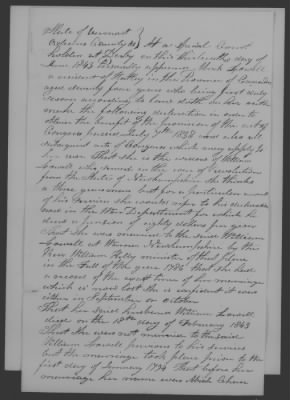 State of Vermont
Orleans County ss } At a Special Court
holden at Derby on this thirteenth day of
June 1843 Personally appeared Abiah Lowell
a resident of Hatley in the Province of Canada
aged seventy four years who being first duly
sworn according to law doth on her oath
make the following declaration in order to
obtain the benefit of the provision of the act of
Congress passed July 7th 1838 and also all
subsequent acts of Congress which may apply to
her case That she is the widow of William
Lowell who served in the war of Revolution
from the State of New Hampshire she thinks
a three years man but for a particular account
of his service she would refer to his declaration
now in the War Department for which he
drew a pension of eighty dollars per year
That she was married to the said William
Lowell at Warner New Hampshire by the
Rev William Kelly minister of that place
in the Fall of the year 1786 that she had
a record of the exact time of her marriage
which is now lost she is confident it was
either in September or October
That her said husband William Lowell
died on the 18th day of February 1843
That she was not married to the said
William Lowell previous to his service
but the marriage took place prior to the
first day of January 1794 That before her
marriage her name was Abiah